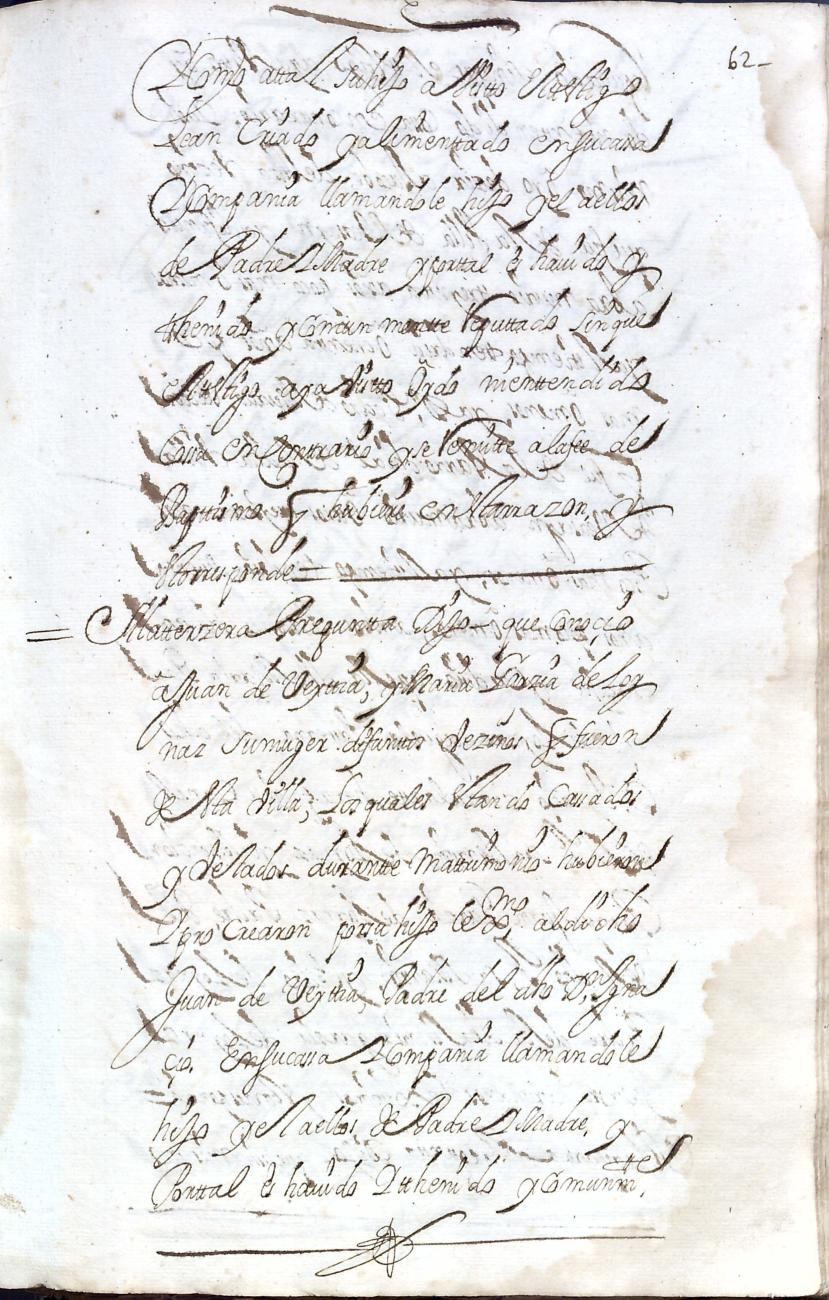 62
Y Como attal su hijo a Visto el testigo
lean Criado y alimenttado en su cassa
Y Compania llamandole hijo y el a ellos
de Padre Y Madre y por ttal es hauido y
thenido y Comun mentte Reputtado sin que
el testigo aya Vistto Oydo ni enttendido
Cossa en Contrario y se Remitte a la fee de
Baptismo q hubiere en Razon y
Corresponde =
= A la tterzera Pregunta Dijo que Conoçio
a Juan de Verttiz, y Maria Garzia de Loy
naz su muger difunttos Vezinos q fueron
de stta Villa; Los quales estando Cassados
y Velados durantte Mattrimonio hubieron
Y pro Crearon por su hijo lexmo, al dicho
Juan de Verttiz, Padre del dho Dn Ygna
çio. En su cassa Y Compania llamandole
hijo y el a ellos de Padre Y Madre, y
Por ttal es hauido Y thenido y Comunmtte